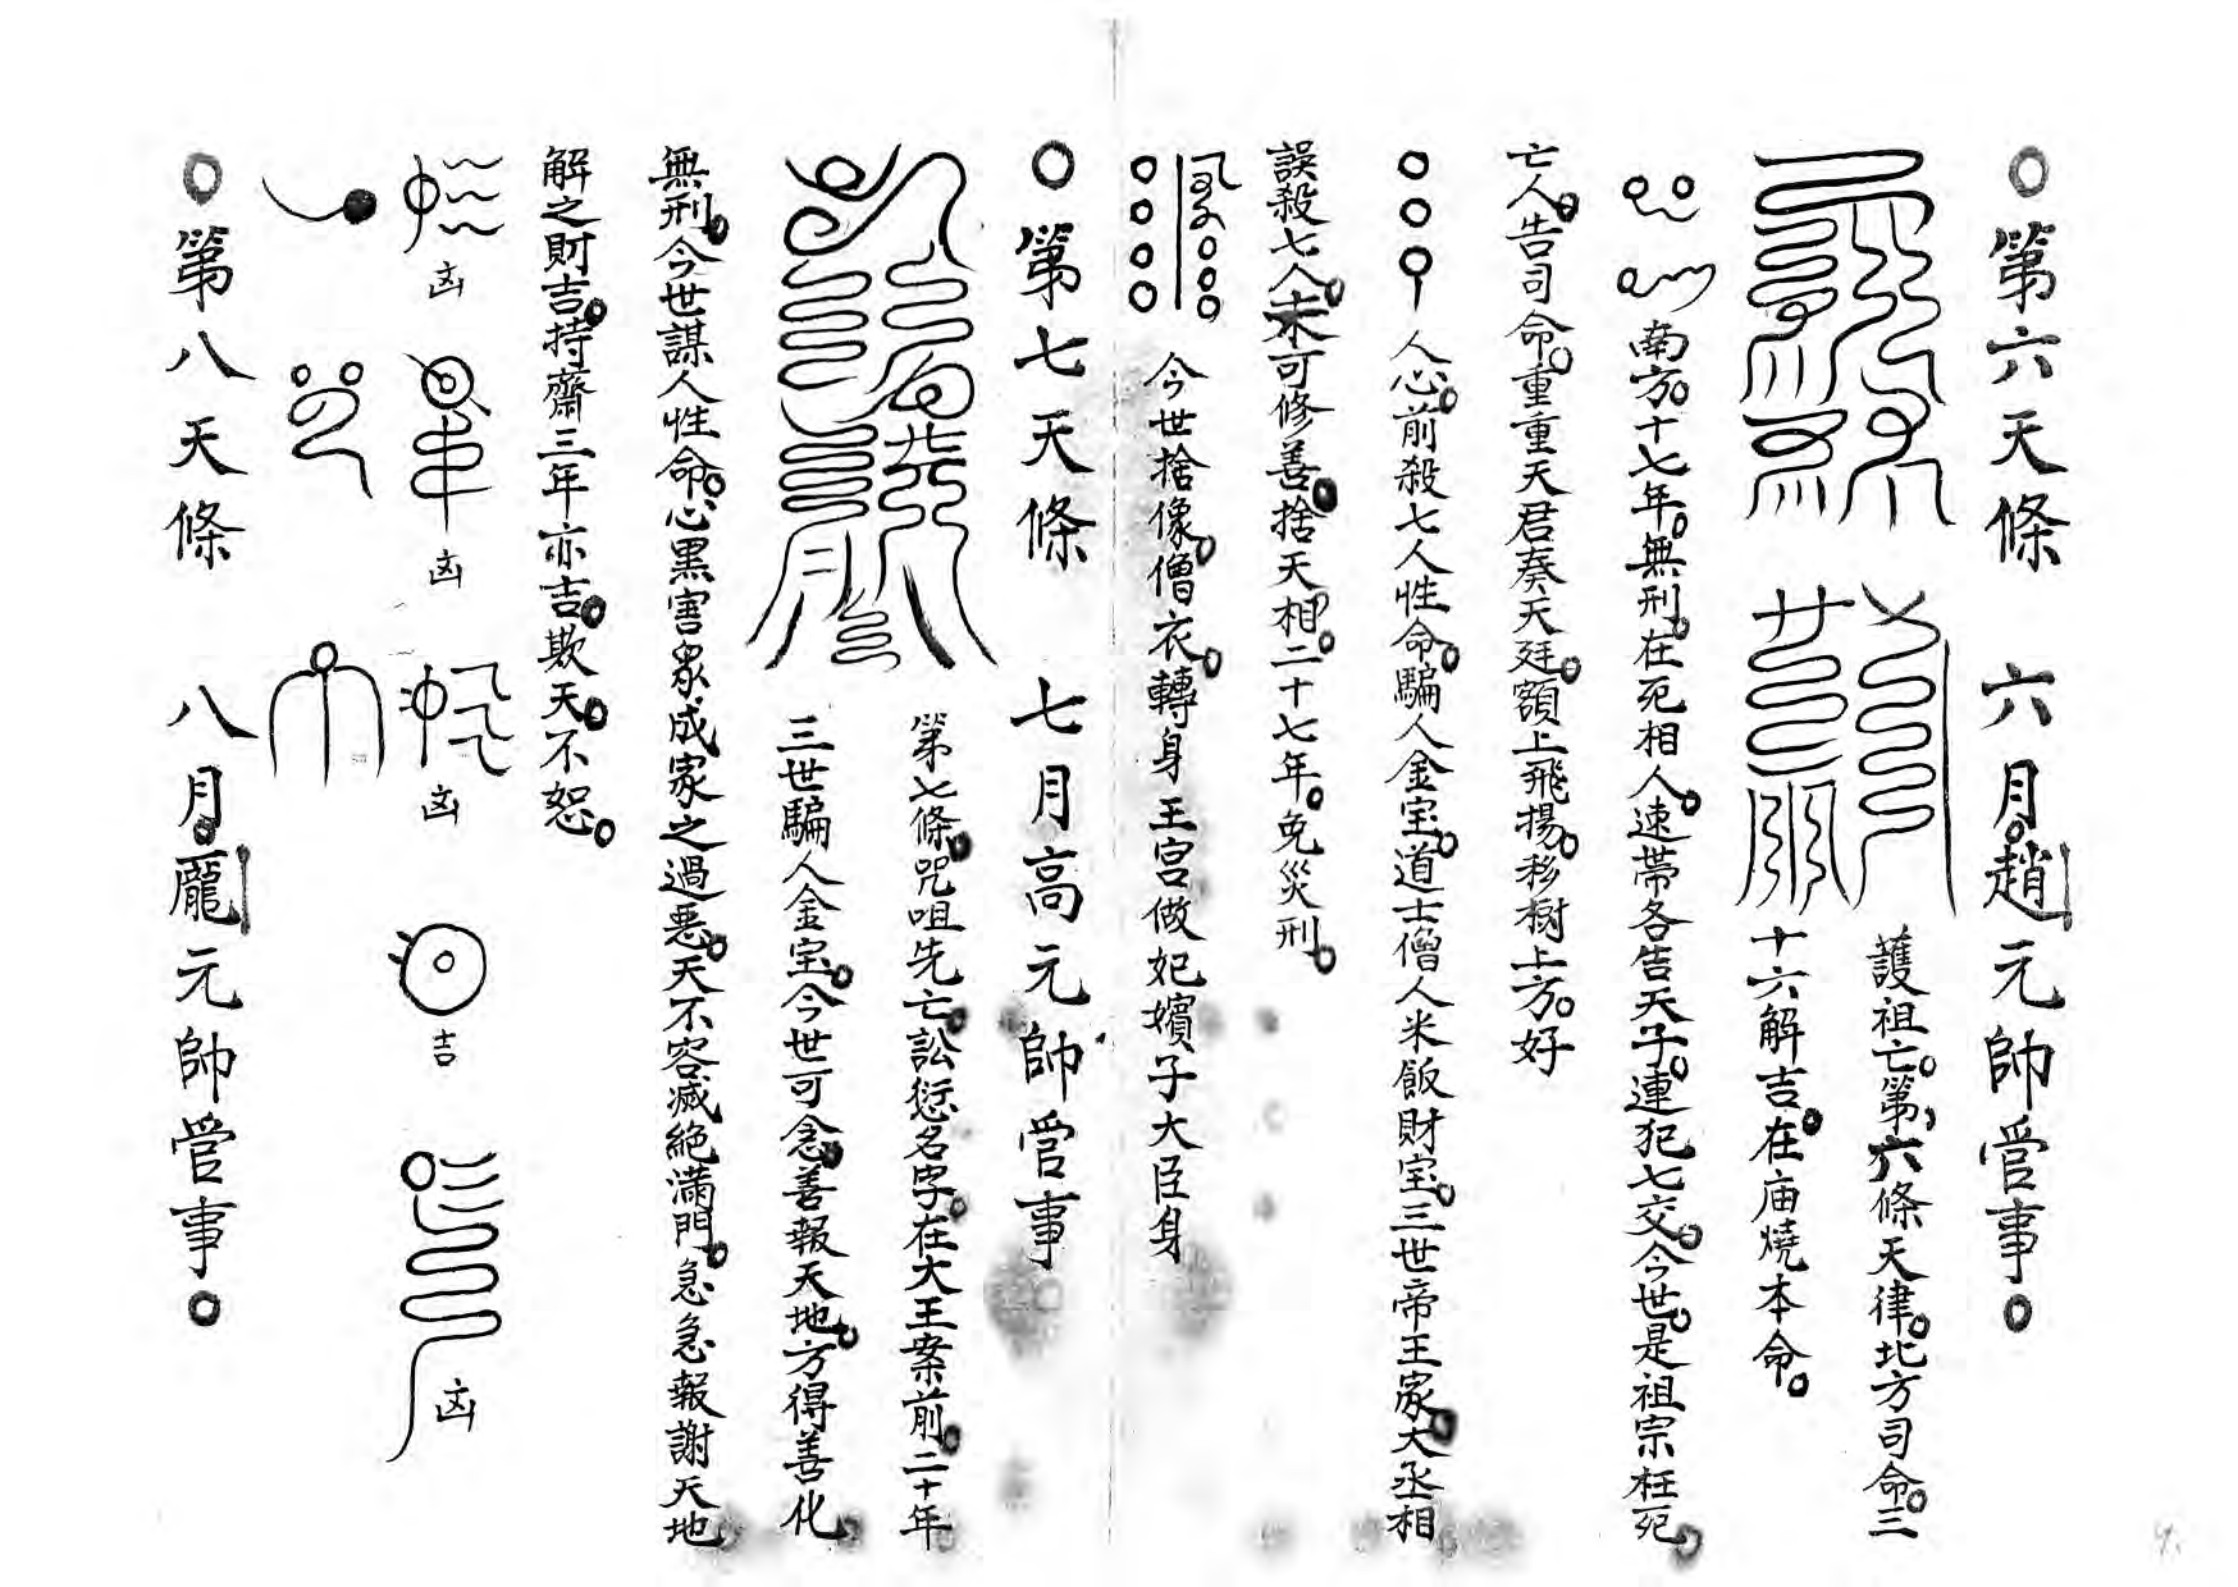 ○第六天條 六月。趙元帥管事。
護祖亡。第六條天律。北方司命。三
十六解吉。在庙燒本命。
南方。十七年。無刑。在死相人。速帶各告天子。連犯七交。今世。是祖宗枉死。
亡人。告司命。重重天君奏天廷。額上飛揚。移樹上方。好
人心。前殺七人性命。騙人金宝。道士僧人米飯財宝。三世帝王家。大丞相
誤殺七人。未可修善。捨天相。二十七年。免災刑。
今世捨像。僧衣。轉身王宫做妃嬪子大臣身
○第七天條 七月高元帥管事
第七條。咒咀先亡。訟愆名字。在大王案前。二十年
三世騙人金宝。今世可念。善報天地。方得善化。
無刑。今世謀人性命。心黑害眾成家之過惡。天不容滅絕滿門。急急報謝天地
解之財吉。持齋三年亦吉。欺天。不恕。
凶 凶 凶 吉 凶
○第八天條 八月。龎元帥管事。